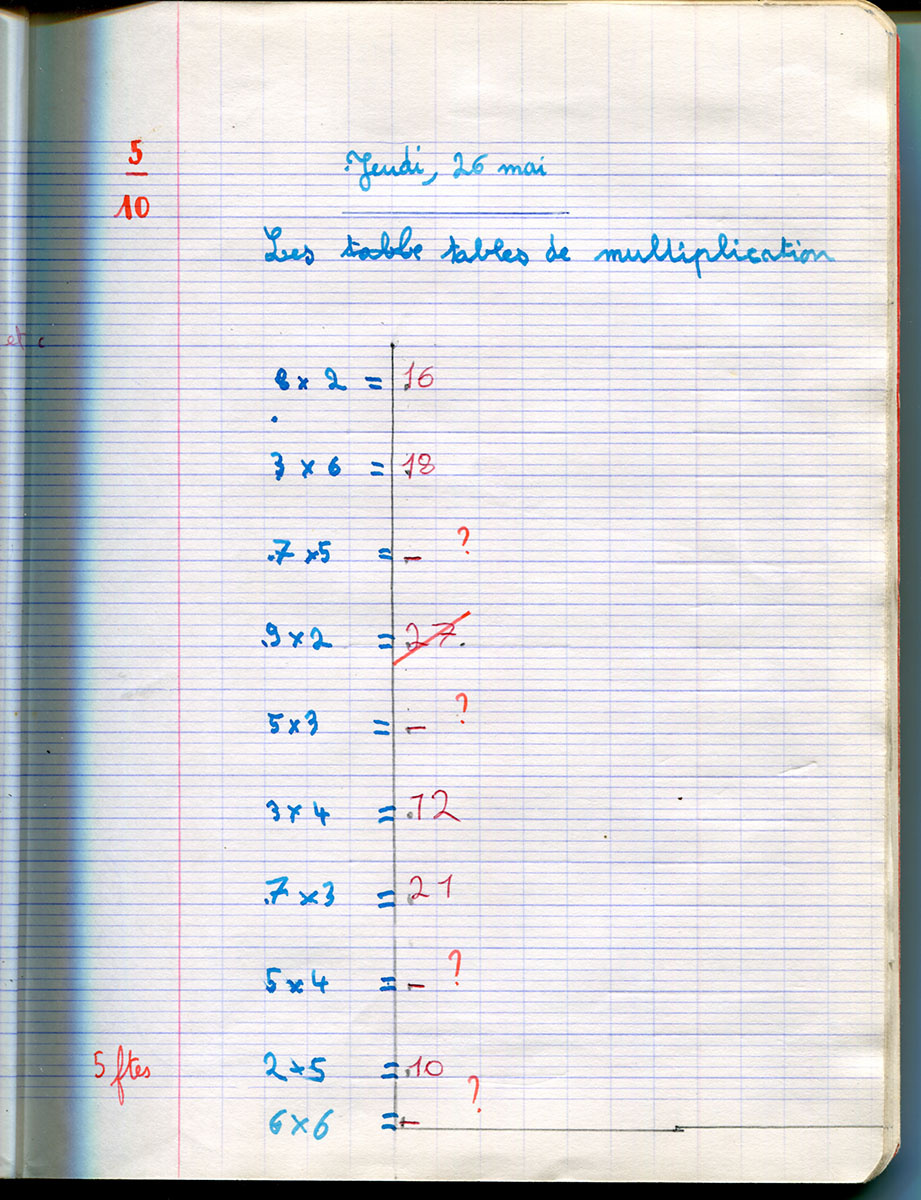 5
10
Jeudi, 26 mai
Les tabbe tables de multiplication
et c
8 x 2 = 16
3 x 6 = 18
7 x 5 = - ?
9 x 2 = 27
5 x 3 = - ?
3 x 4 = 12
7 x 3 = 21
5 x 4 = - ?
5 ftes 2 x 5 = 10
6 x 6 = - ?